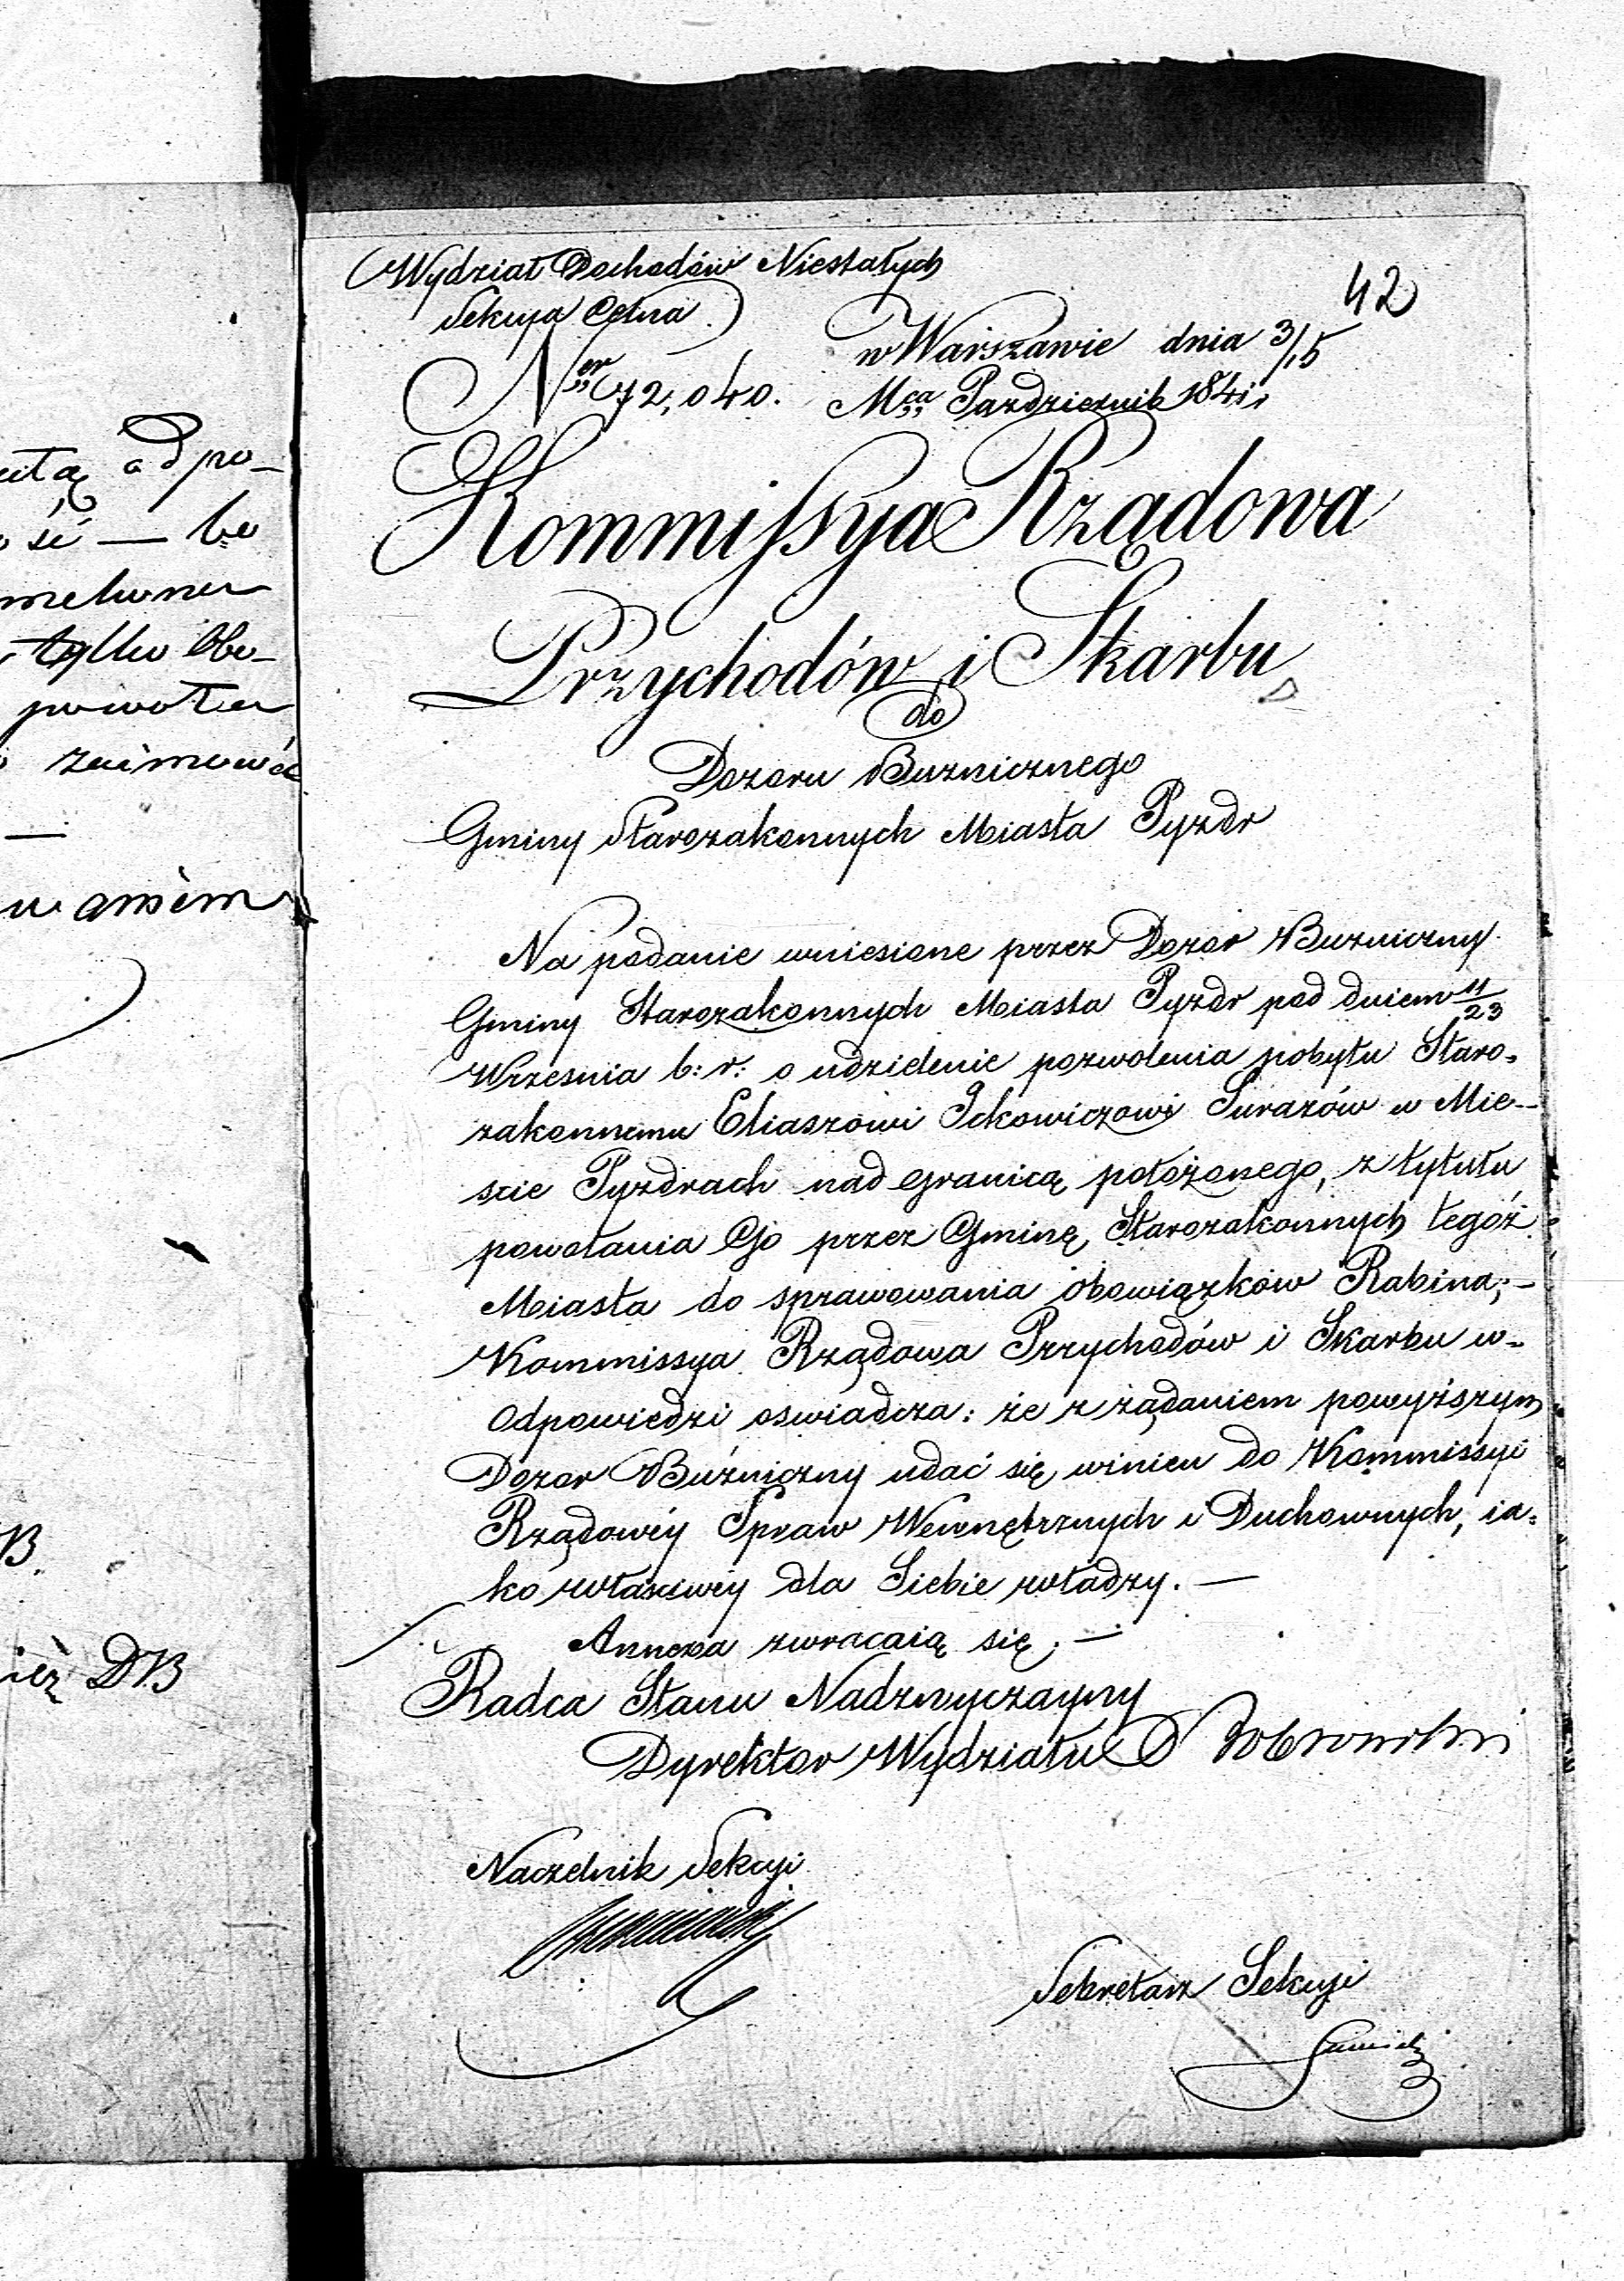 Wydział Dochodów Niestałych
Sekcya Celna
42
w Warszawie dnia 3/15
Ner 72,040. Mca Pazdziernik 1841
Kommissya Rządowa
Przychodów i Skarbu
do
Dozoru Buznicznego
Gminy Starozakonnych Miasta Pyzdr
Na podanie wniesione przez Dozor Buzniczny
Gminy Starozakonnych Miasta Pyzdr pod dniem 11/23
Wrzesnia b: r: o udzielenie pozwolenia pobytu Staro-
zakonnemu Eliaszowi Ickowiczowi Surazów w Mie-
scie Pyzdrach nad granicą położonego, z tytułu
powołania Go przez Gminę Starozakonnych tegoż
Miasta do sprawowania obowiązków Rabina; -
Kommissya Rządowa Przychodów i Skarbu w-
odpowiedzi oswiadcza: że z żądaniem powyższym
Dozor Buźniczny udać się winien do Kommissyi
Rządowéy Spraw Wewnętrznych i Duchownych, ia-
ko własciwéy dla Siebie władzy. —
Annexa zwracaią się. —
Radca Stanu Nadzwyczayny
Dyrektor Wydziału
Naczelnik Sekcyi
Sekretarz Sekcyi
ad pro-
si — bo
tylko Obo-
powoła
zaimowa
waniem
B.
DB